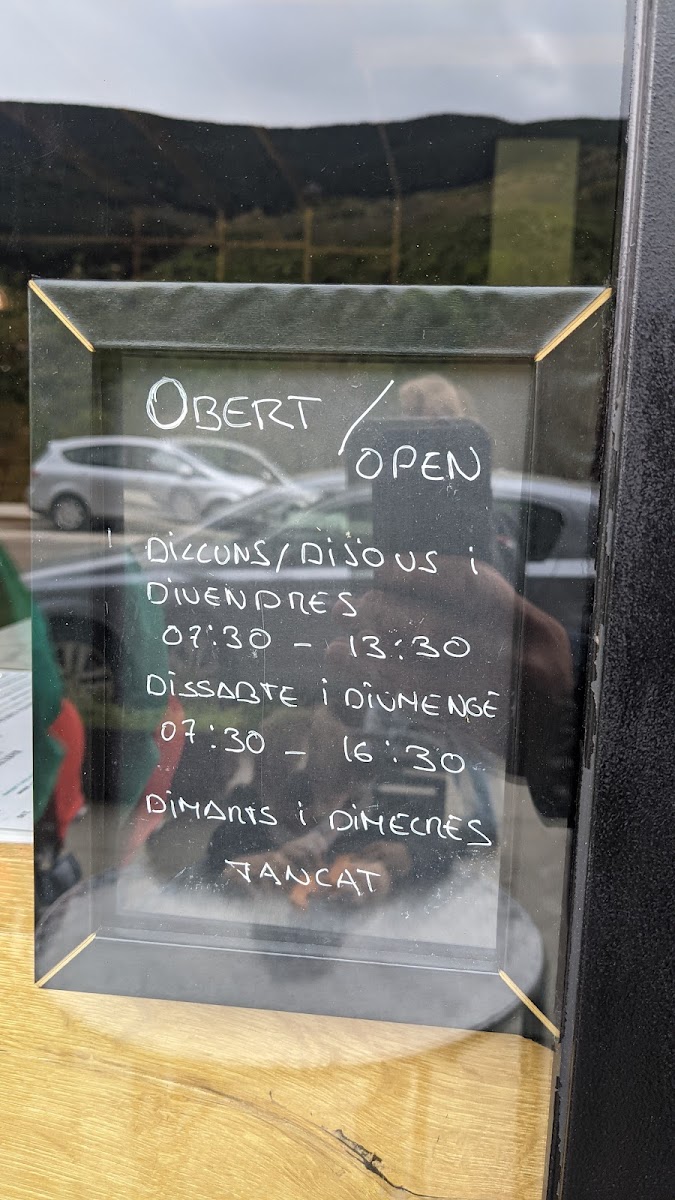 OBERT /
OPEN
DILLUNS/DIJOUS i
DIVENDRES
07:30 - 13:30
DISSABTE i DIUMENGE
07:30 - 16:30
DIMARTS i DIMECRES
TANCAT